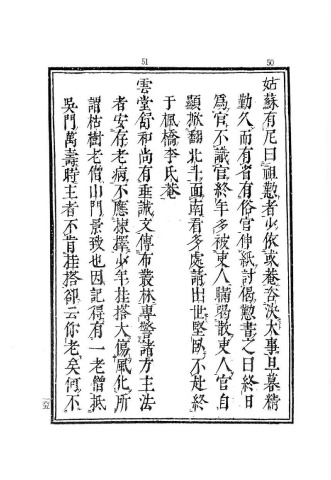 50
51
姑蘇有尼曰祖懃者少依或菴咨決大事旦暮精
勤久而有省有俗官伸紙討偈懃書之曰終日
為官不識官終年多被吏人瞞喝散吏人官自
顯掀翻北斗面南看多處請出世堅臥不赴終
于楓橋李氏菴
雲堂舒和尚有垂誡文傳布叢林專警諸方主法
者安存老病不應揀擇少年挂搭大傷風化所
謂枯樹老僧山門景致也因記得有一老僧抵
吳門萬壽時主者不肯挂搭卻云你老矣何不